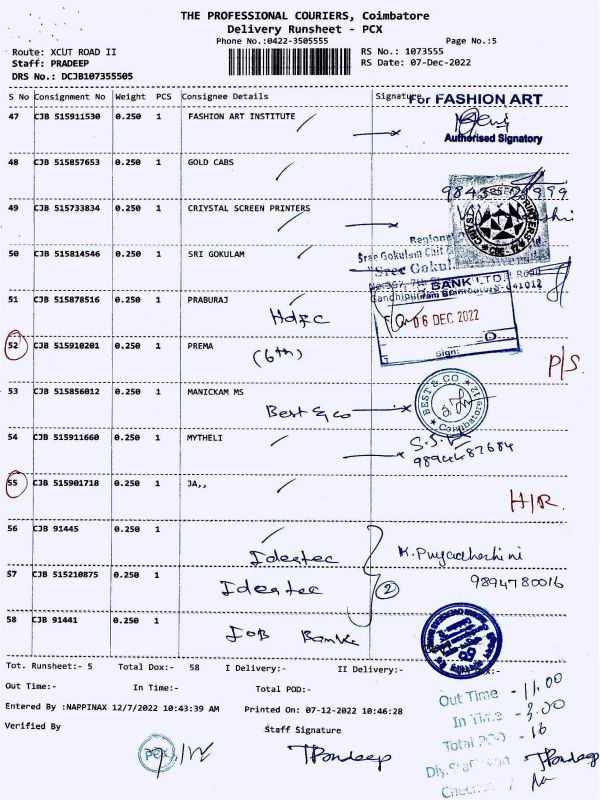 THE PROFESSIONAL COURIERS, Coimbatore
Delivery Runsheet - PCX
Phone No.:0422-3505555 Page No.:5
Route: XCUT ROAD II RS No.: 1073555
Staff: PRADEEP RS Date: 07-Dec-2022
DRS No.: DCJB107355505
S No Consignment No Weight PCS Consignee Details Signature
For FASHION ART
47 CJB 515911530 0.250 1 FASHION ART INSTITUTE
Authorised Signatory
48 CJB 515857653 0.250 1 GOLD CABS
49 CJB 515733834 0.250 1 CRIYSTAL SCREEN PRINTERS
50 CJB 515814546 0.250 1 SRI GOKULAM
Sree Gokulam Chit
51 CJB 515878516 0.250 1 PRABURAJ
BANK LTD.
Hdfc
06 DEC 2022
52 CJB 515910201 0.250 1 PREMA
(6th)
Sign:
P/S.
53 CJB 515856012 0.250 1 MANICKAM MS
Best & co
BEST & CO
Coimbatore-12
54 CJB 515911660 0.250 1 MYTHELI
55 CJB 515901718 0.250 1 JA,,
H/R.
56 CJB 91445 0.250 1
Ideatec
57 CJB 515210875 0.250 1
Ideatec
2
9894780016
58 CJB 91441 0.250 1
IOB Bank
Tot. Runsheet:- 5 Total Dox:- 58 I Delivery:- II Delivery:-
Out Time:- In Time:- Total POD:-
Out Time - 11.00
In Time - 3.00
Total POD - 16
Entered By :NAPPINAX 12/7/2022 10:43:39 AM Printed On: 07-12-2022 10:46:28
Verified By Staff Signature
PCX